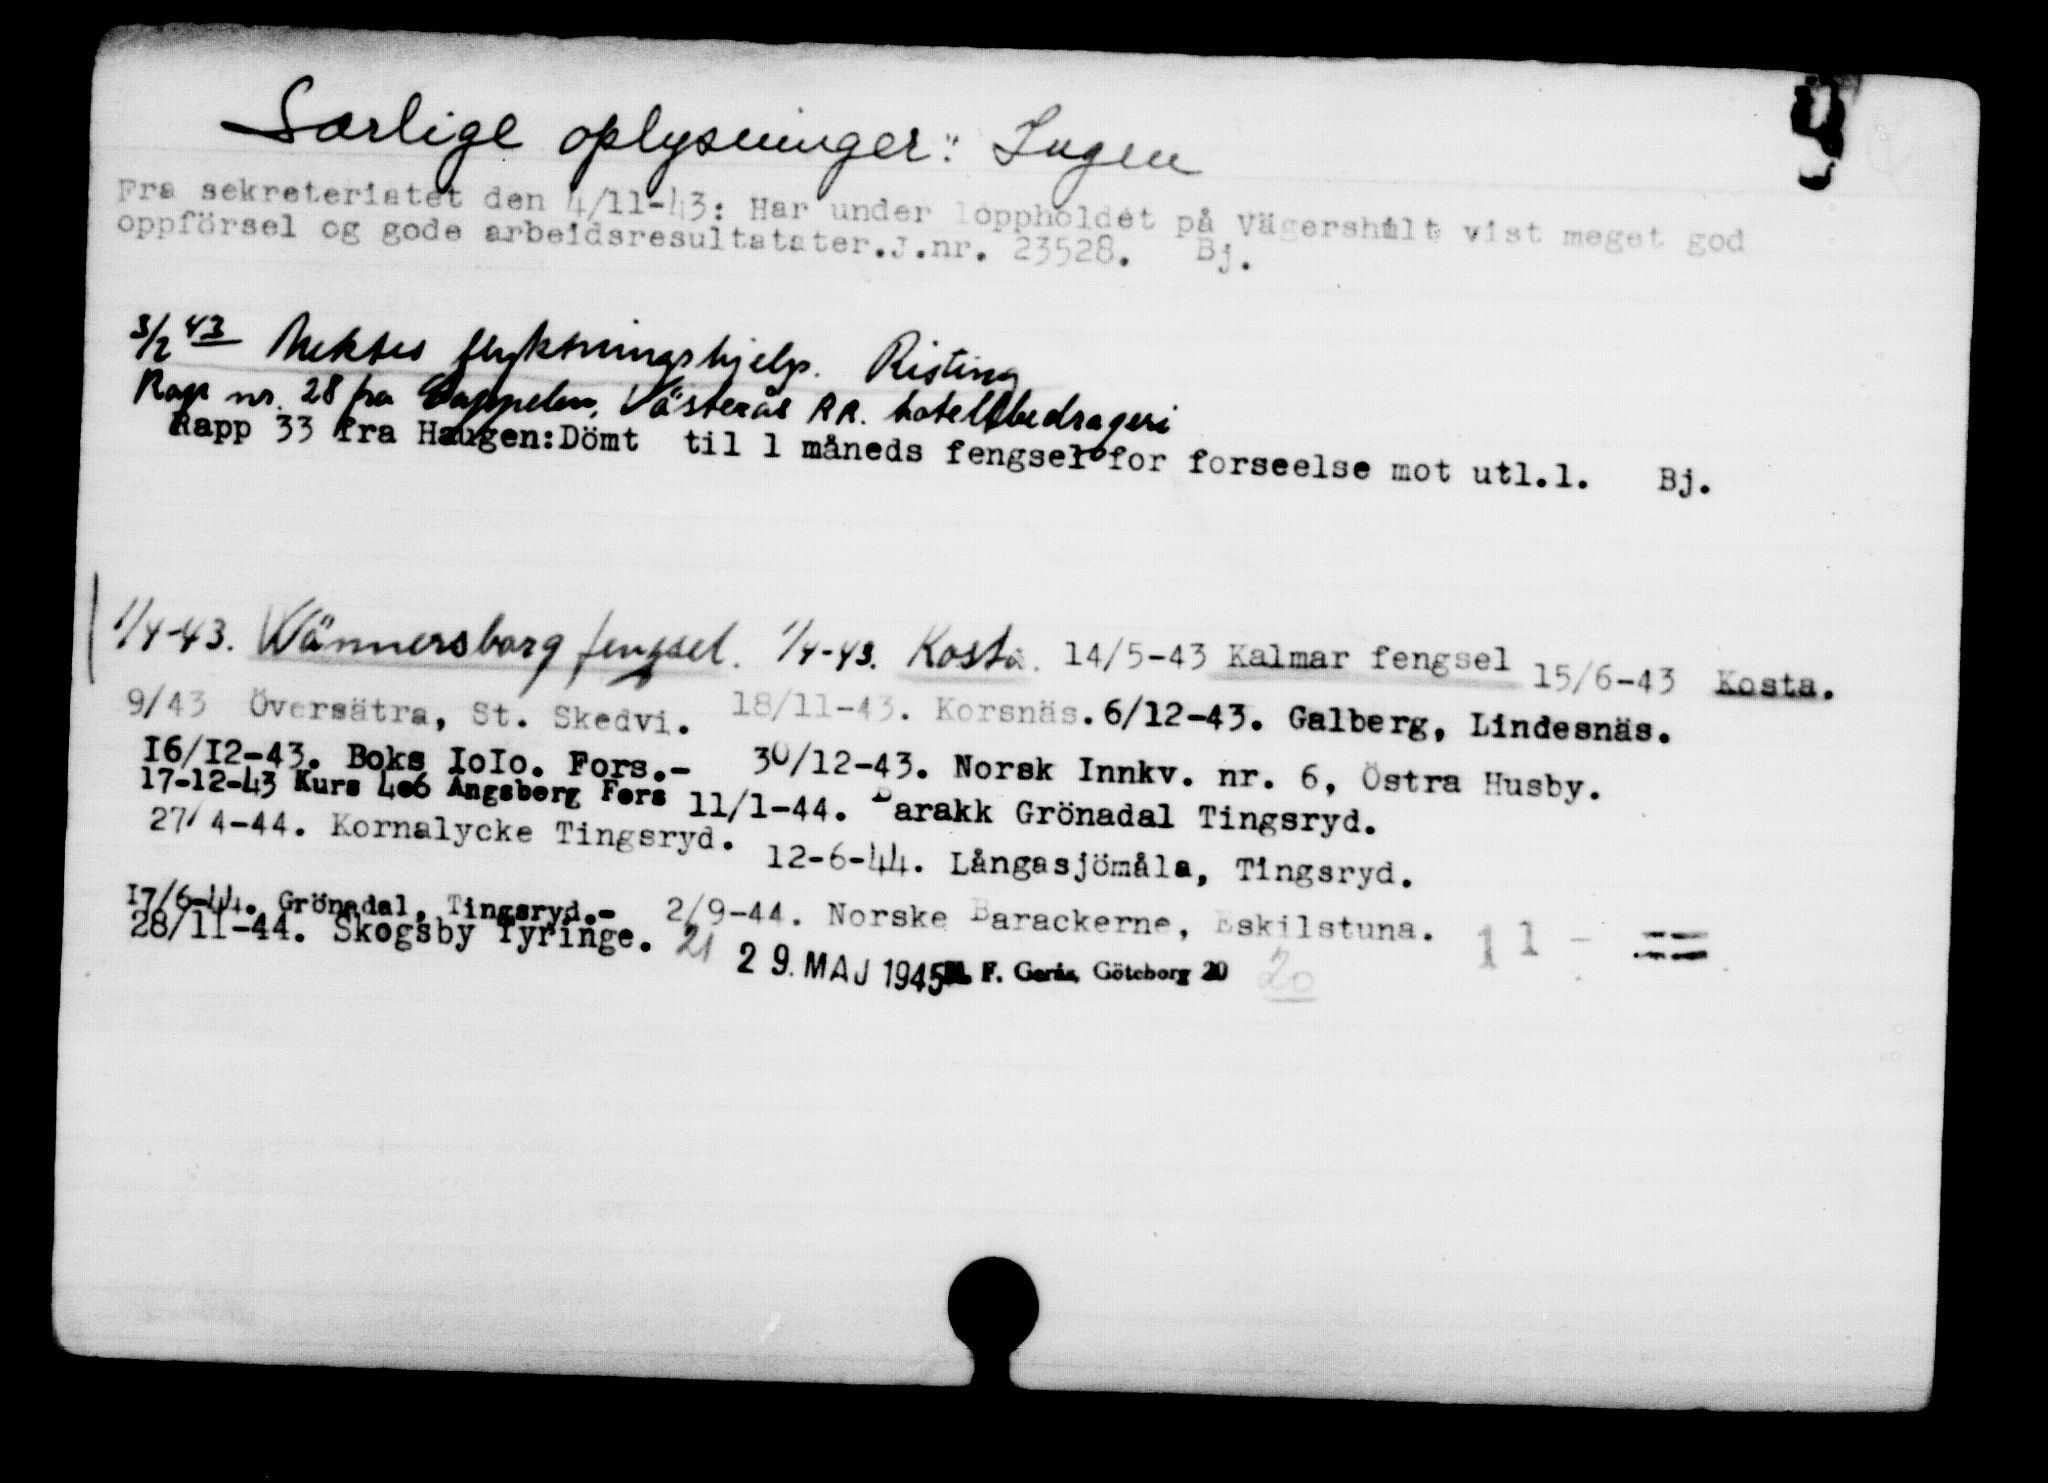 Særlige oplysninger: Ingen
Fra sekreteriatet den 4/11-43: Har under loppholdet på Vägershult vist meget god
oppförsel og gode arbeidsresultatater.J.nr. 23528. Bj.
3/2 43 Nektes flyktningshjelp. Risting
Rap nr. 28 fra Cappelen, Västerås RR. hotellbedrageri
Rapp 33 fra Haugen:Dömt til 1 måneds fengsel for forseelse mot utl.l. Bj.
1/4-43. Wännersborg fengsel. 1/4-43. Kosta. 14/5-43 Kalmar fengsel 15/6-43 Kosta.
9/43 Översätra, St. Skedvi. 18/11-43. Korsnäs. 6/12-43. Galberg, Lindesnäs.
16/12-43. Boks IoIo. Fors.- 30/12-43. Norsk Innkv. nr. 6, Östra Husby.
17-12-43 Kurs 406 Ängsberg Fors 11/1-44. Barakk Grönadal Tingsryd.
27/4-44. Kornalycke Tingsryd. 12-6-44. Långasjömåla, Tingsryd.
17/6-44. Grönadal, Tingsryd.- 2/9-44. Norske Barackerne, Eskilstuna. 11 - ==
28/11-44. Skogsby Tyringe. 21 29. MAJ 1945 F. Gerås, Göteborg 20 20